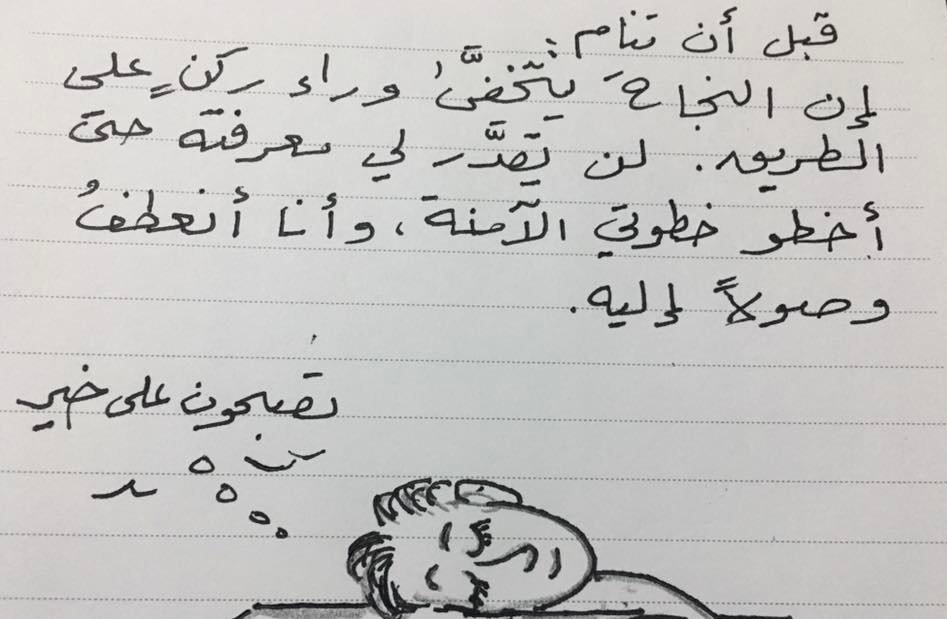 قبل أن تنام:
إن النجاحَ يتخفَّى وراء ركنٍ على
الطريق. لن تقدَّر لي معرفته حتى
أخطو خطوتي الآمنة، وأنا أنعطفُ
وصولاً إليه.
تصبحون على خير